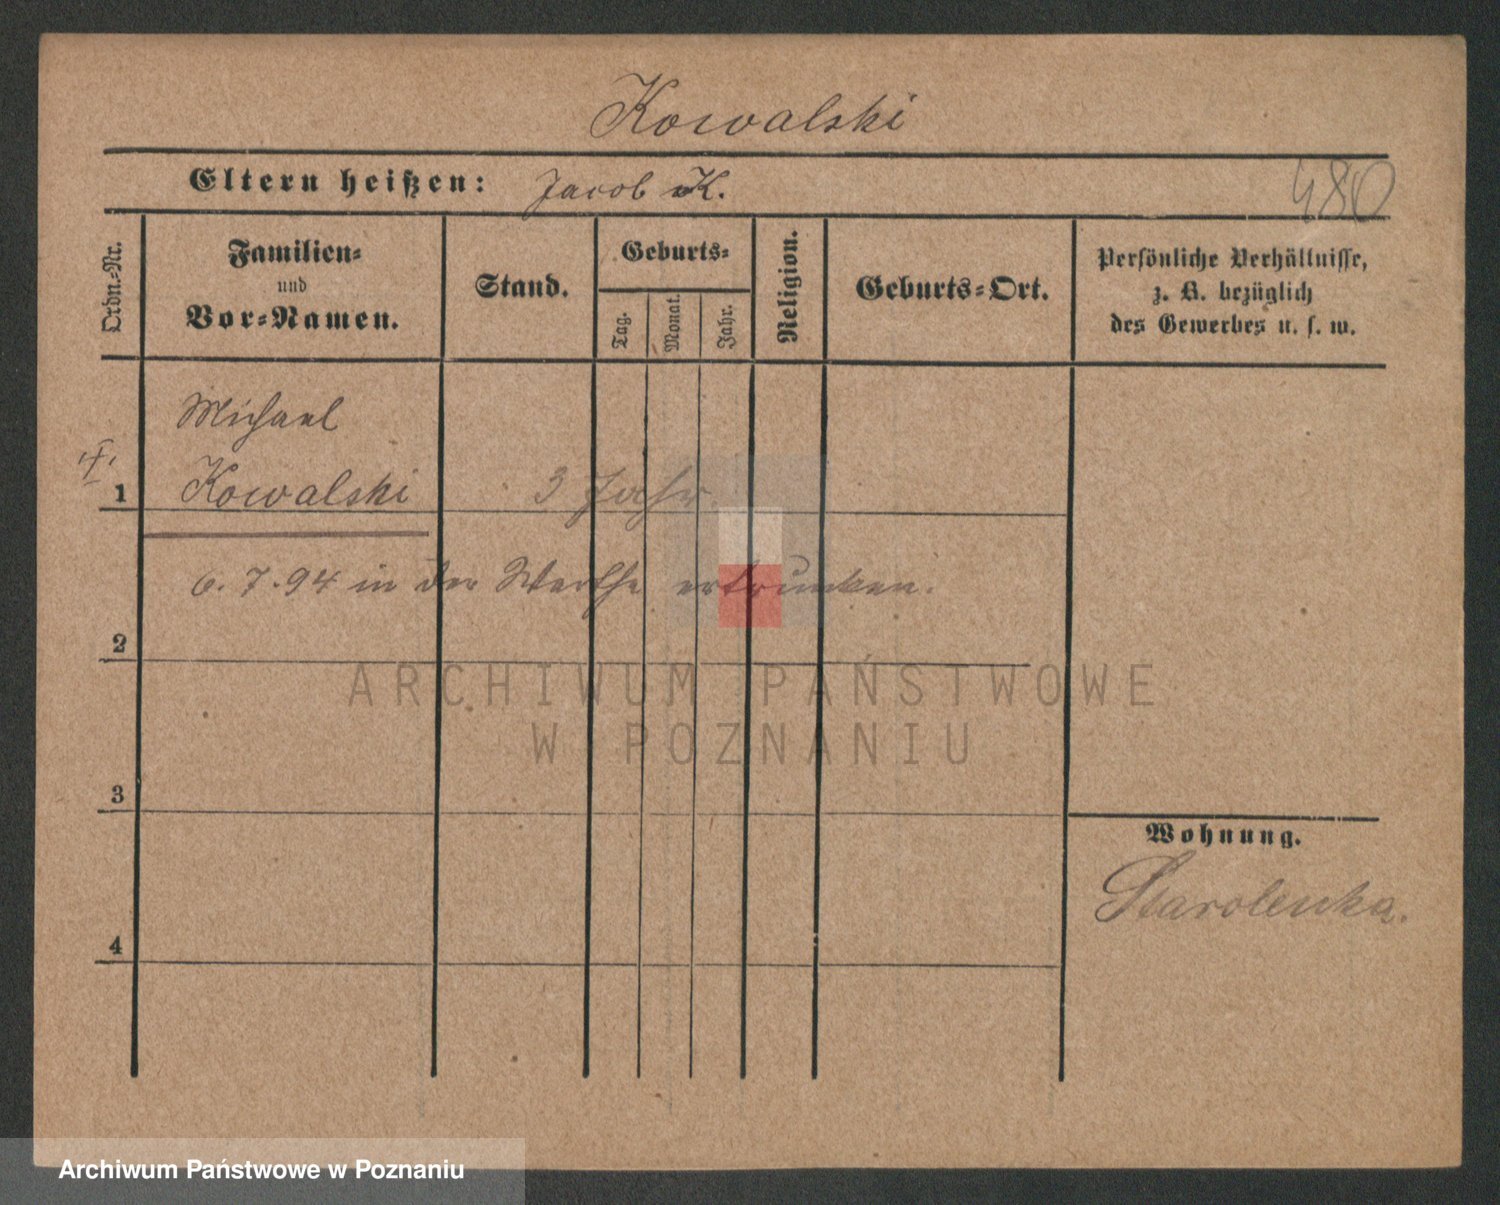 Kowalski
Eltern heißen: Jacob K.
480
Ordn.-Nr.
Familien-
und
Vor-Namen.
Stand.
Geburts-
Tag.
Monat.
Jahr.
Religion.
Geburts-Ort.
Persönliche Verhältnisse,
z. B. bezüglich
des Gewerbes u. s. w.
Michael
1 Kowalski 3 Jahr
6.7.94 in der Warthe ertrunken.
2
ARCHIWUM PAŃSTWOWE
W POZNANIU
3
Wohnung.
Starolenka.
4
Archiwum Państwowe w Poznaniu